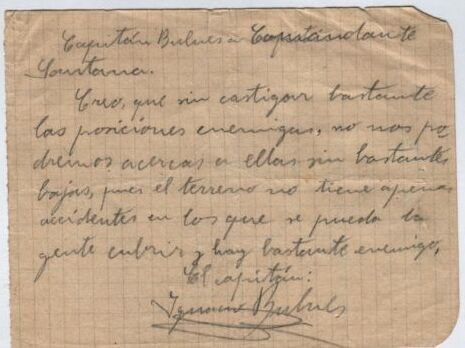 Capitán Bulnes a Comandante
Santana.
Creo, que sin castigar bastante
las posiciones enemigas, no nos po-
dremos acercas a ellas sin bastantes
bajas, pues el terreno no tiene apenas
accidentes en los que se pueda la
gente cubrir y hay bastante enemigo,
El capitán:
Ignacio Bulnes